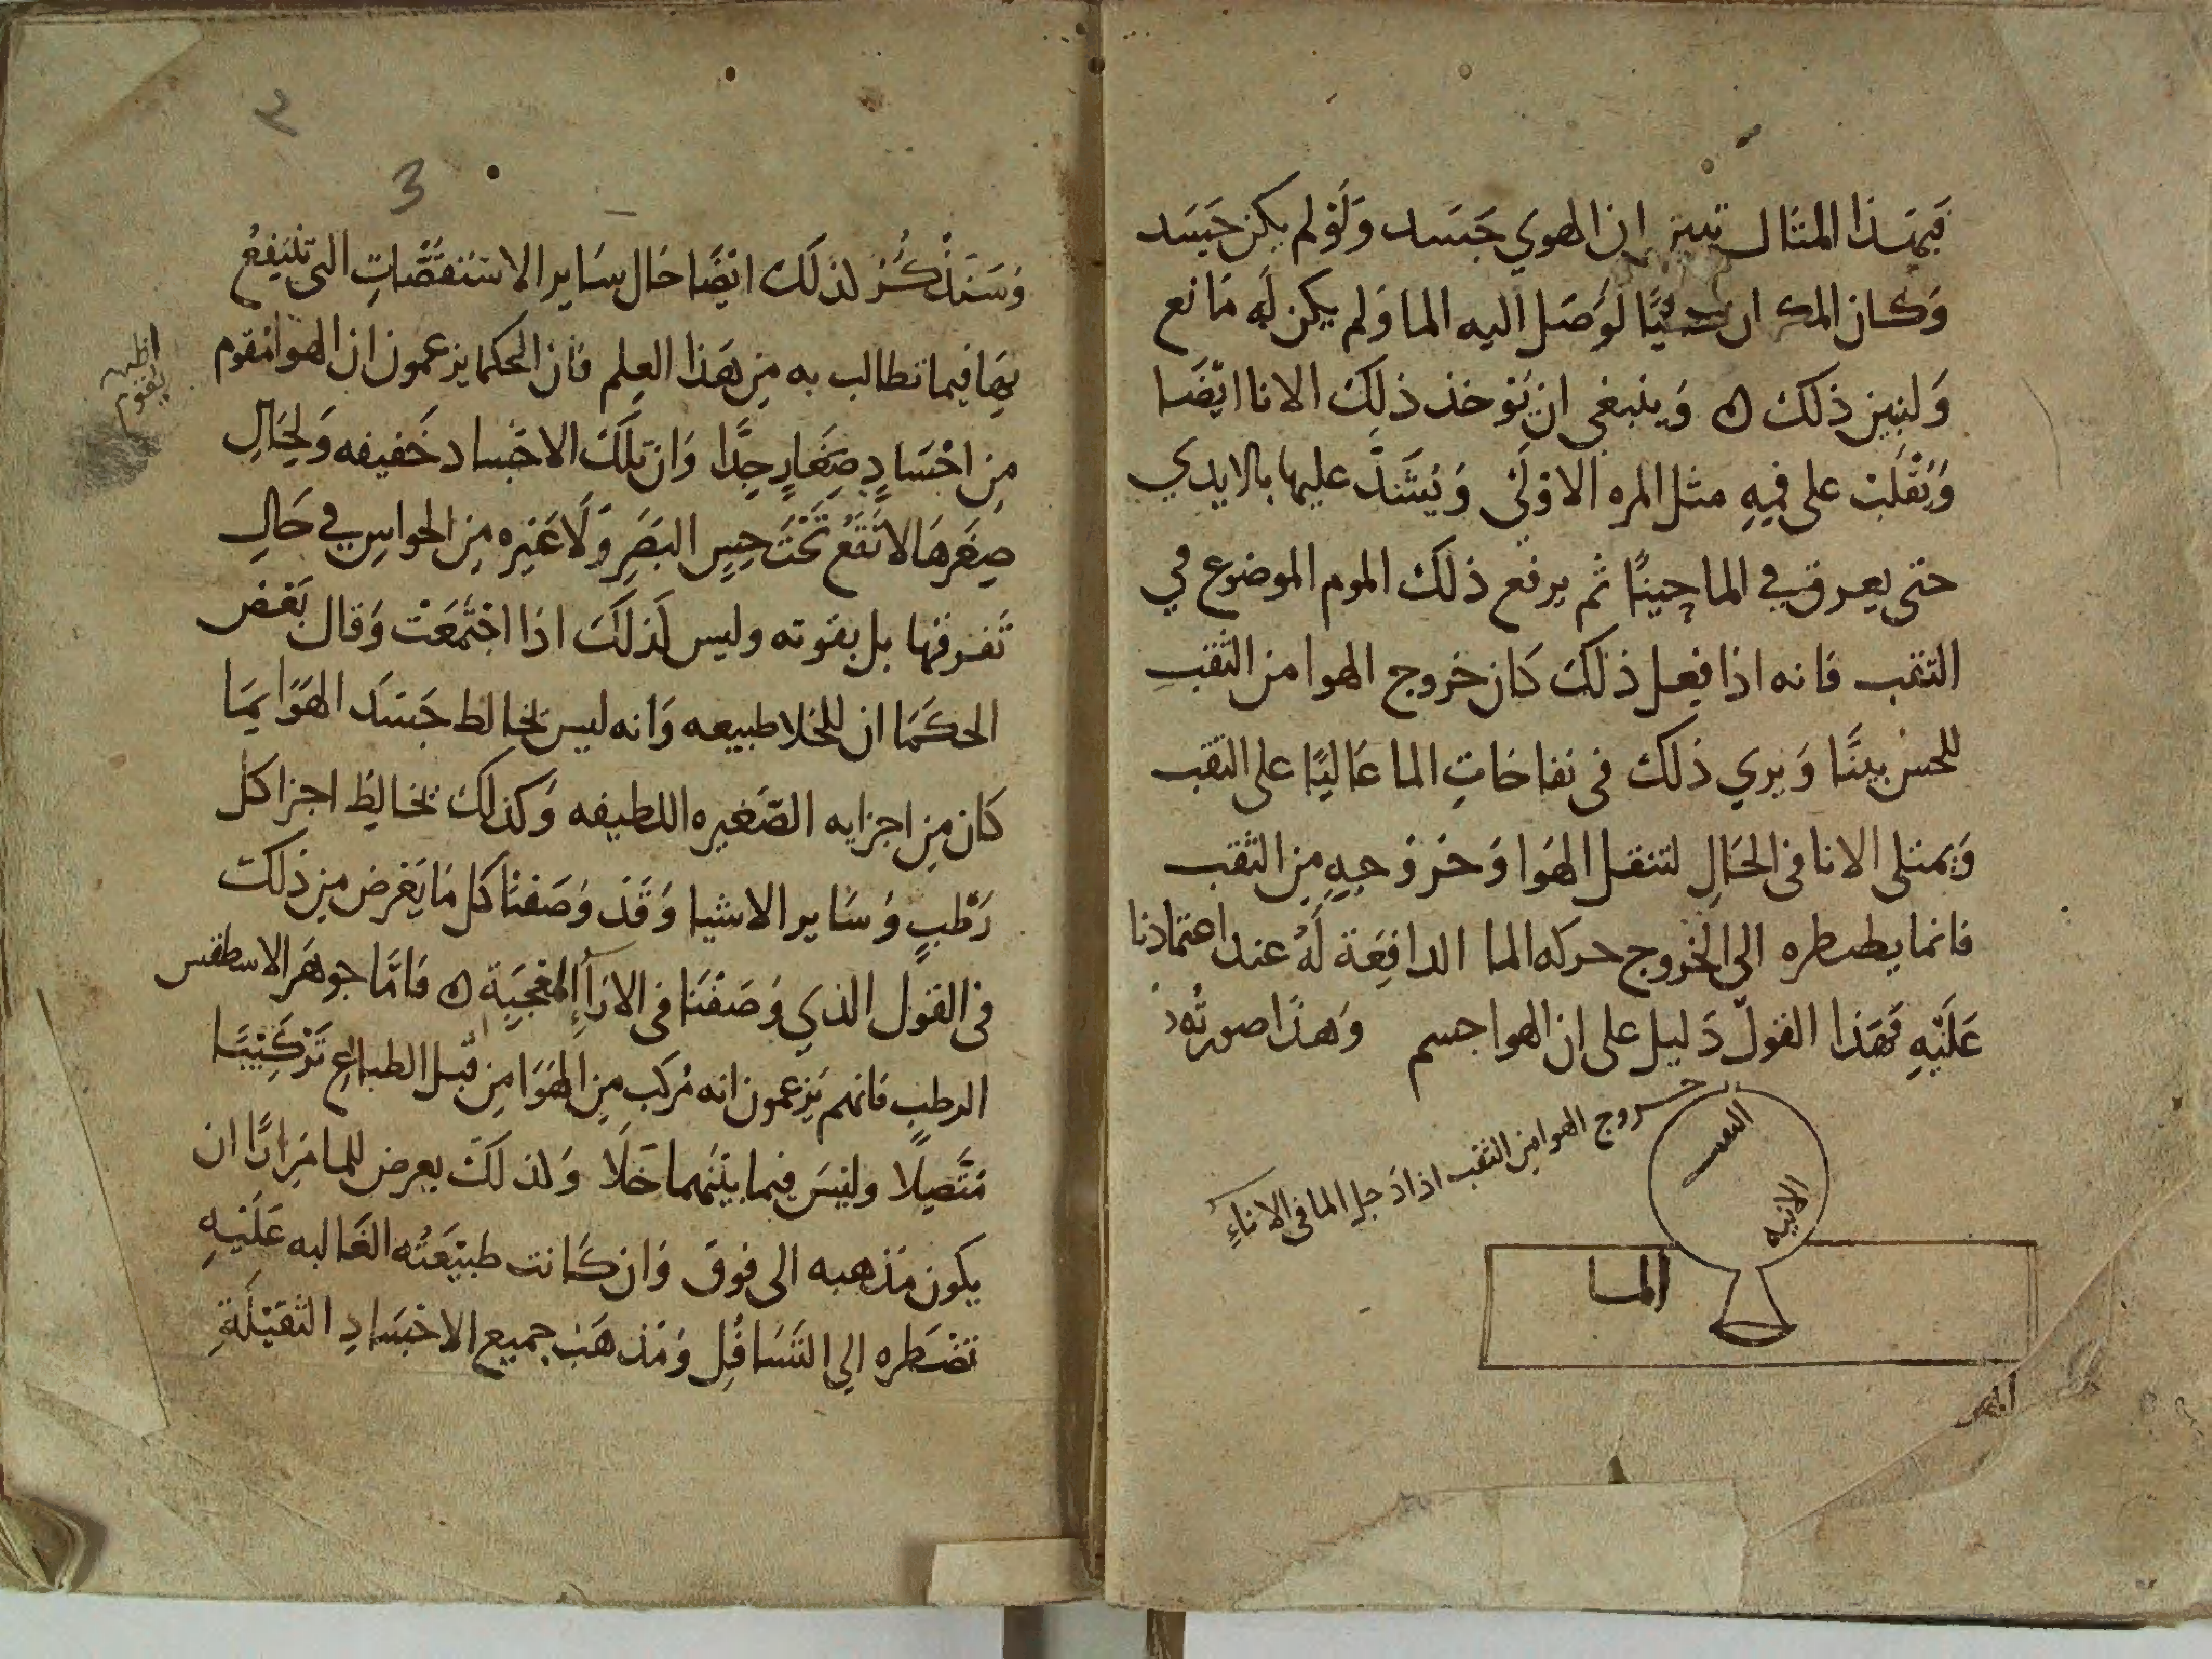 فبهذا المثال تبين ان الهوي جسد ولو لم يكن جسد
وكان المكان خاليًا لوصل اليه الما ولم يكن له مانع
ولنبين ذلك ه وينبغي ان يوخذ ذلك الانا ايضا
ويقلب على فيه مثل المره الاولى ويشد عليها بالايدي
حتى يعرق في الما حينًا ثم يرفع ذلك الموم الموضوع في
الثقب فانه اذا فعل ذلك كان خروج الهوا من الثقب
للحس بينًا ويري ذلك في نفاخات الما عاليًا على الثقب
ويمتلى الانا في الحال لتنقل الهوا وخروجه من الثقب
فانما يضطره الى الخروج حركه الما الدافعة له عند اعتمادنا
عليه فهذا القول دليل على ان الهوا جسم وهذا صورته
خروج الهوا من الثقب اذا دخل الما في الاناء
الثقب
الانيه
الما
٢
3
وسنذكر لذلك ايضًا حال ساير الاستقصات التي ننتفع
بها فيما تطالب به من هذا العلم فان الحكما يزعمون ان الهوا مقوم
اظن يقوم
من اجساد صغار جدًا وان تلك الاجساد خفيفه ولحال
صغرها لا تقع تحت حس البصر ولا غيره من الحواس في حال
تفرقها بل بقوته وليس كذلك اذا اجتمعت وقال بعض
الحكما ان للخلا طبيعه وانه ليس يخالط جسد الهوا بما
كان من اجزايه الصغيره اللطيفه وكذلك تخالط اجزا كل
رطب وساير الاشيا وقد وصفنا كل ما يعرض من ذلك
في القول الذي وصفنا في الارا المعجبة ه فاما جوهر الاسطقس
الرطب فانهم يزعمون انه مركب من الهوا من قبل الطبايع تركيبًا
متصلا وليس فيما بينهما خلا ولذلك يعرض للما مرارًا ان
يكون مذهبه الى فوق وان كانت طبيعته الغالبه عليه
تضطره الي التسافل ومذهب جميع الاجساد الثقيلة